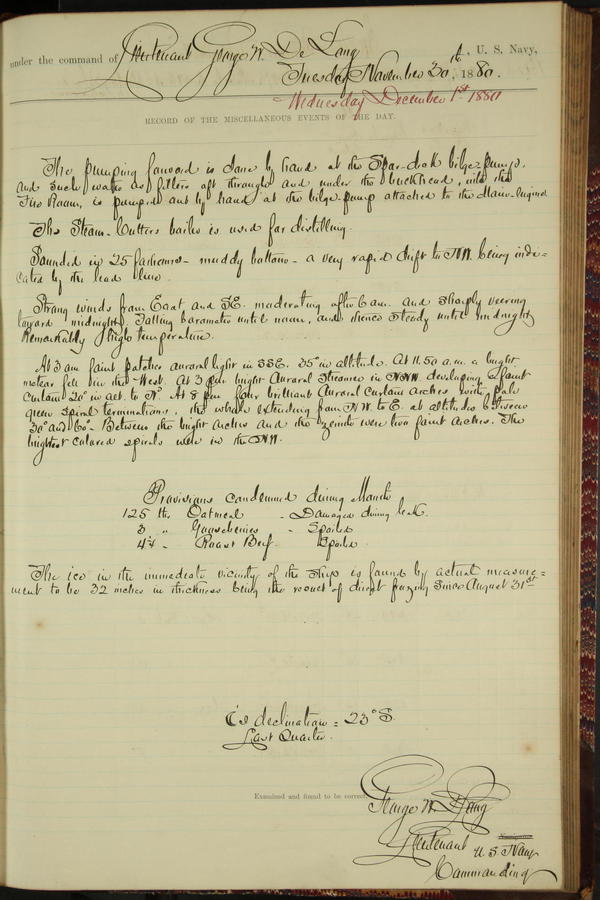 under the command of Lieutenant George W. De Long, U. S. Navy,
Tuesday November 30th, 1880.
Wednesday December 1st 1880
RECORD OF THE MISCELLANEOUS EVENTS OF THE DAY.
The pumping forward is done by hand at the Spar-deck bilge-pumps,
and such water as filters aft through and under the bulkhead, into the
Fire Room, is pumped out by hand at the bilge pump attached to the Main-Engine.
The Steam-Cutters boiler is used for distilling.
Sounded in 25 fathoms - muddy bottom - a very rapid drift to NW. being indi=
cated by the lead line.
Strong winds from East and SE. moderating after 6 am. and sharply veering
toward midnight. Falling barometer until noon, and thence steady until midnight
Remarkably high temperature.
At 3 am faint patches auroral light in SSE. 35° in altitude. At 11.50 a.m. a bright
meteor fell in the West. At 3 pm bright Auroral Streamer in NNW. developing a faint
Curtain 20° in alt. to Nd. At 8 pm four brilliant Auroral Curtain Arches with pale
green spiral terminations, the whole extending from NW. to E. at altitudes between
30° and 60°. Between the bright arches and the zenith were two faint arches. The
brightest colored spirals were in the NW.
Provisions condemned during Month
125 lbs Oatmeal - Damaged during leak.
3 " Gooseberries - Spoiled
" Roast Beef - Spoiled
The ice in the immediate vicinity of the ship is found by actual measure=
ment to be 32 inches in thickness being the result of direct freezing since August 31st
declination = 23° S.
Last Quarter.
Examined and found to be correct.
George W. De Long
Lieutenant U S Navy
Commanding